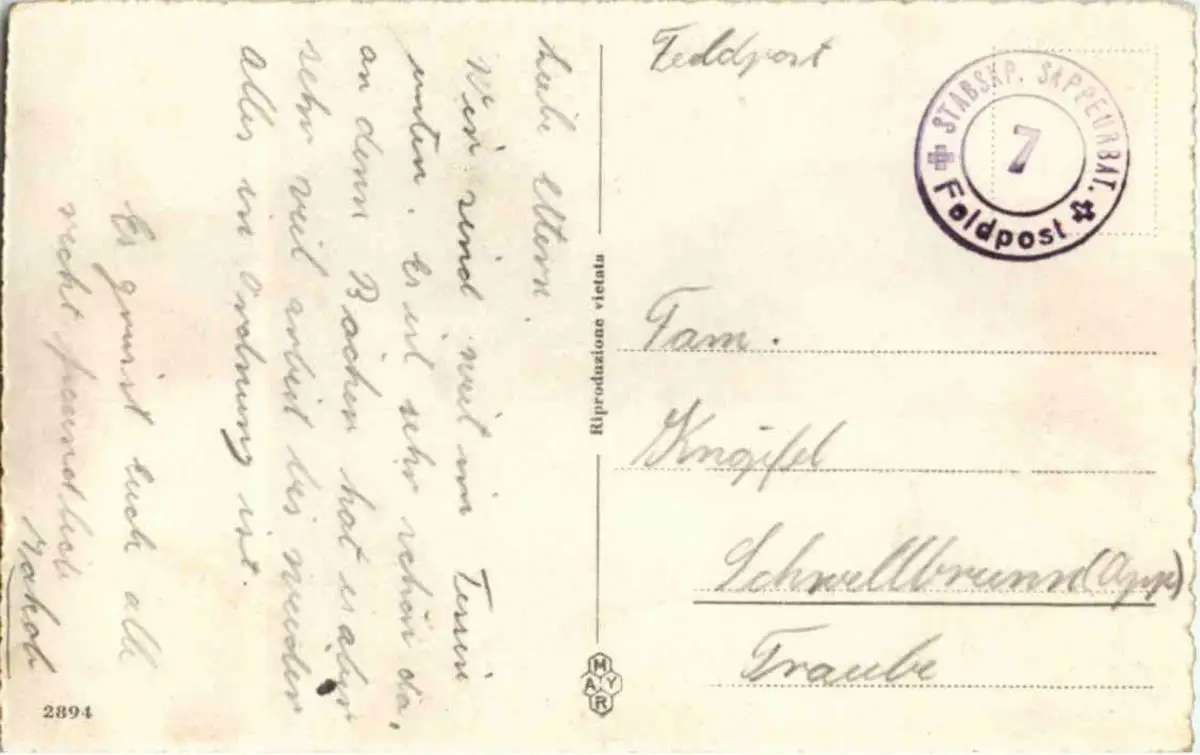 Feldpost
STABSKP. SAPPEURBAT.
7
Feldpost
Liebe Eltern.
Wir sind weit im Tessin
unten. Es ist sehr schön da,
an denn Bächen hat es aber
sehr viel arbeit bis wieder
alles in Ordnung ist.
Es grüsst Euch alle
recht freundlich
Jakob
2894
Riproduzione vietata
MAYR
Fam.
Knöpfel
Schwellbrunn (App)
Traube